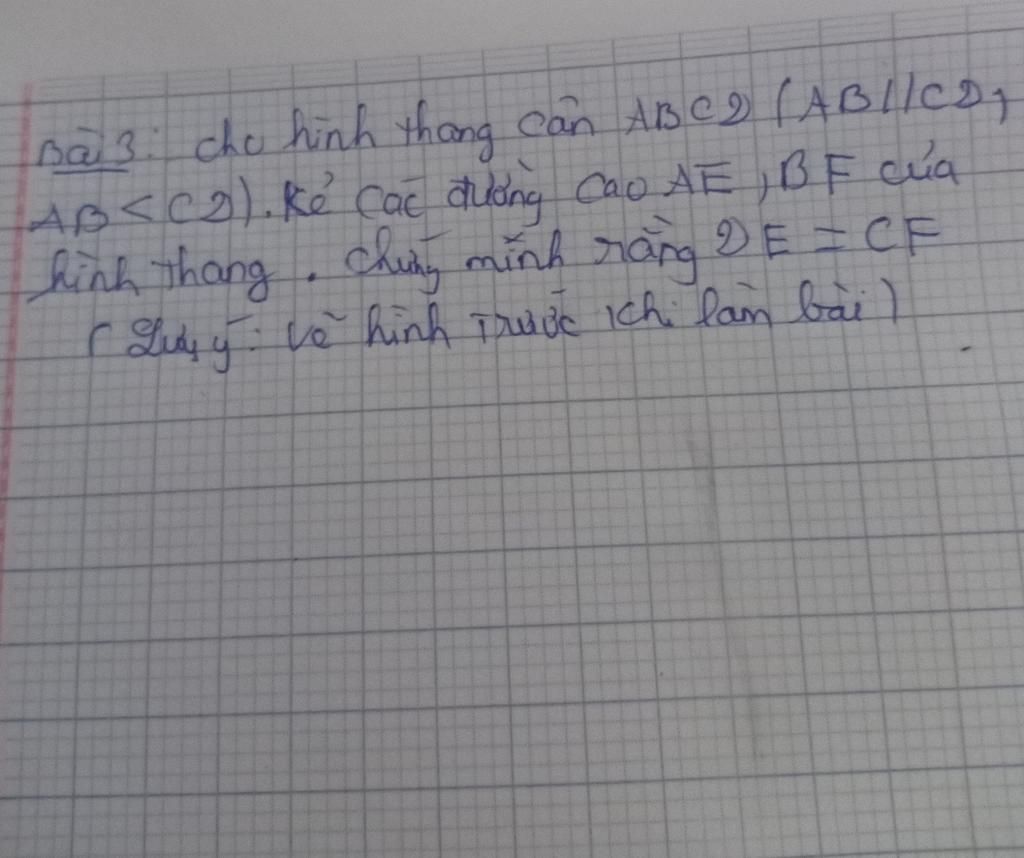 Bài 3: cho hình thang cân ABCD (AB//CD,
AB < CD). Kẻ các đường cao AE, BF của
hình thang. Chứng minh rằng DE = CF
(Lưu ý: vẽ hình trước khi làm bài)